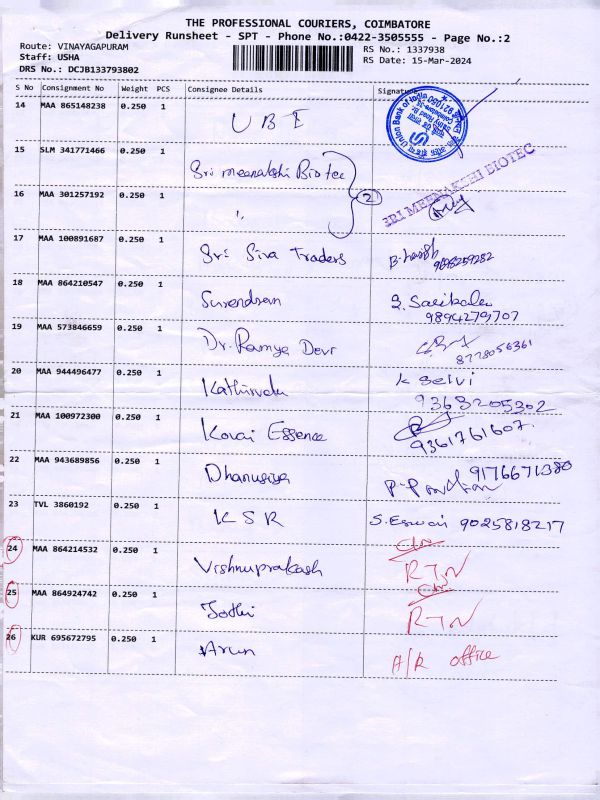 THE PROFESSIONAL COURIERS, COIMBATORE
Delivery Runsheet - SPT - Phone No.:0422-3505555 - Page No.:2
Route: VINAYAGAPURAM
Staff: USHA
DRS No.: DCJB133793802
RS No.: 1337938
RS Date: 15-Mar-2024
S No Consignment No Weight PCS Consignee Details Signature
14 MAA 865148238 0.250 1 UBI
Union Bank of India
15 SLM 341771466 0.250 1 Sri meenakshi Biotec
SRI MEENAKSHI BIOTEC
16 MAA 301257192 0.250 1 " 2
17 MAA 100891687 0.250 1 Sri Siva Traders 9698259282
18 MAA 864210547 0.250 1 Surendran S. Sasikala
9894279707
19 MAA 573846659 0.250 1 Dr. Ramya Devi
8778056361
20 MAA 944496477 0.250 1 Kathirvelu K Selvi
9363205302
21 MAA 100972300 0.250 1 Kovai Essence
9361761607
22 MAA 943689856 0.250 1 Dhanusiya 9176671380
23 TVL 3860192 0.250 1 KSR S. Eswari 9025818217
24 MAA 864214532 0.250 1 Vishnuprakash RTN
25 MAA 864924742 0.250 1 Jothi RTN
26 KUR 695672795 0.250 1 Arun A/R office